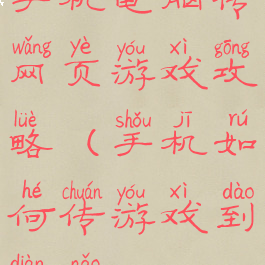 手机电脑传
wǎng yè yóu xì gōng
网页游戏攻
lüè shǒu jī rú
略（手机如
hé chuán yóu xì dào
何传游戏到
diàn nǎo